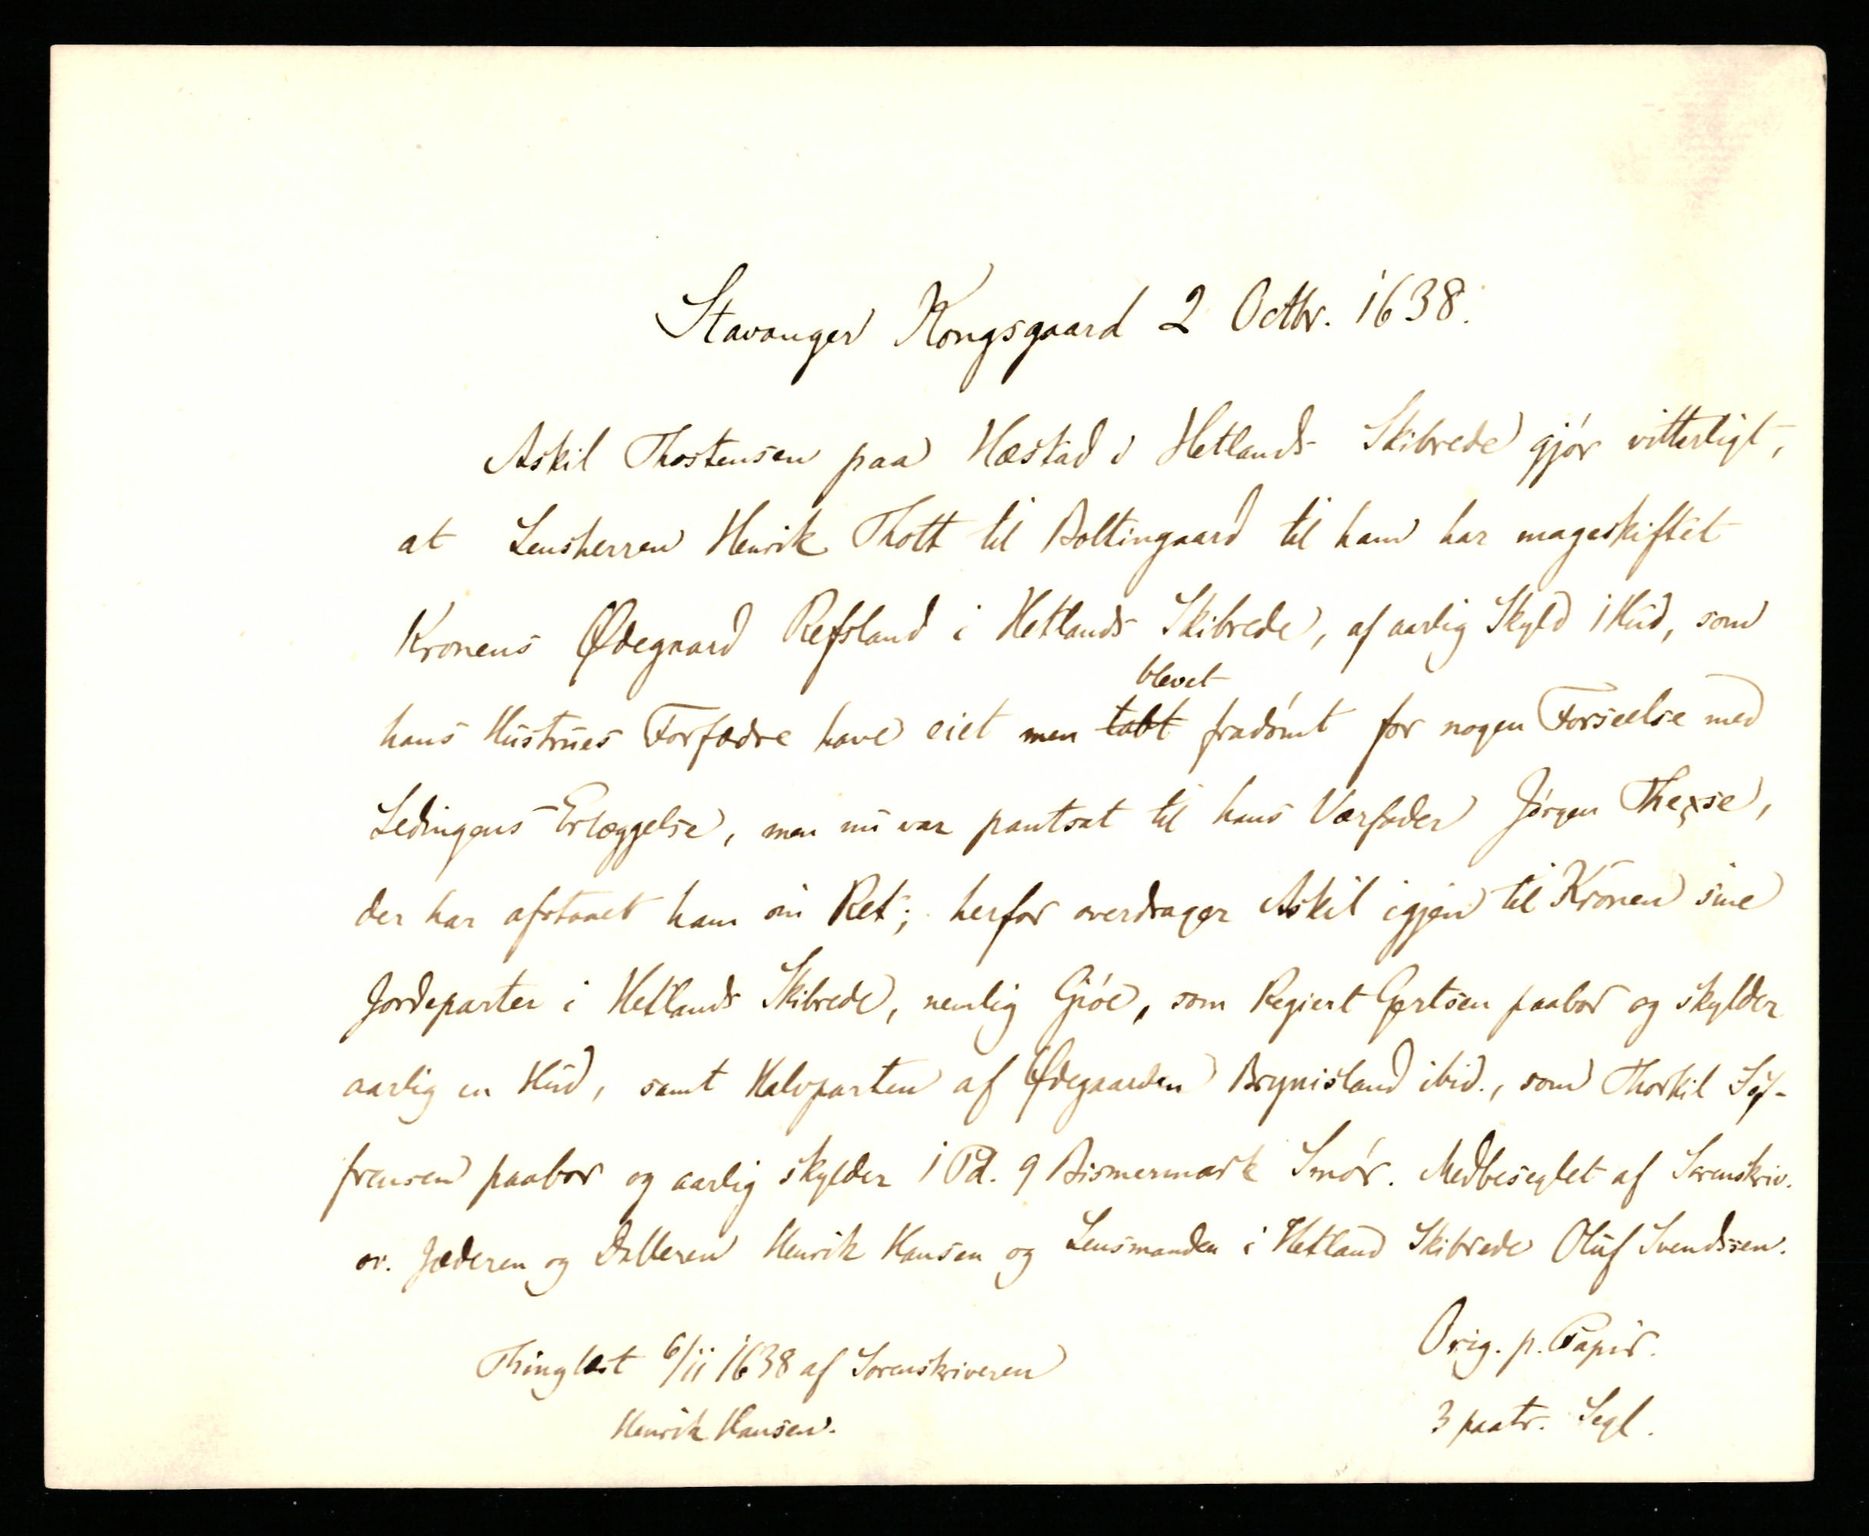 Stavanger Kongsgaard 2 Octbr. 1638.
Askil Thostensen paa Hæstad i Hetlands Skibrede gjør vitterligt,
at Lensherren Henrik Thott til Boltingaard til ham har mageskiftet
Kronens Ødegaard Refsland i Hetlands Skibrede, af aarlig Skyld 1 Hud, som
blevet
hans Hustrues Forfædre have eiet men tabt fradømt for nogen Forseelse med
Ledingens Erlæggelse, men nu var pantsat til hans Værfader Jørgen
der har afstaaet ham sin Ret; herfor overdrager Askil igjen til Kronen sine
Jordeparter i Hetlands Skibrede, nemlig Gjøe, som Regiert Gertsen paabor og skylder
aarlig en Hud, samt Halvparten af Ødegaarden Brynisland ibid., som Thorkil Søf-
frensen paabor og aarlig skylder 1 Pd. 9 Bismermark Smør. Medbeseglet af Sorenskriv.
ov. Jæderen og Dalleren Henrik Hansen og Lensmanden i Hetland Skibrede Oluf Svendssen.
Orig. p. Papir.
Thinglæst 6/11 1638 af Sorenskriveren
3 paatr. Segl.
Henrik Hansen.